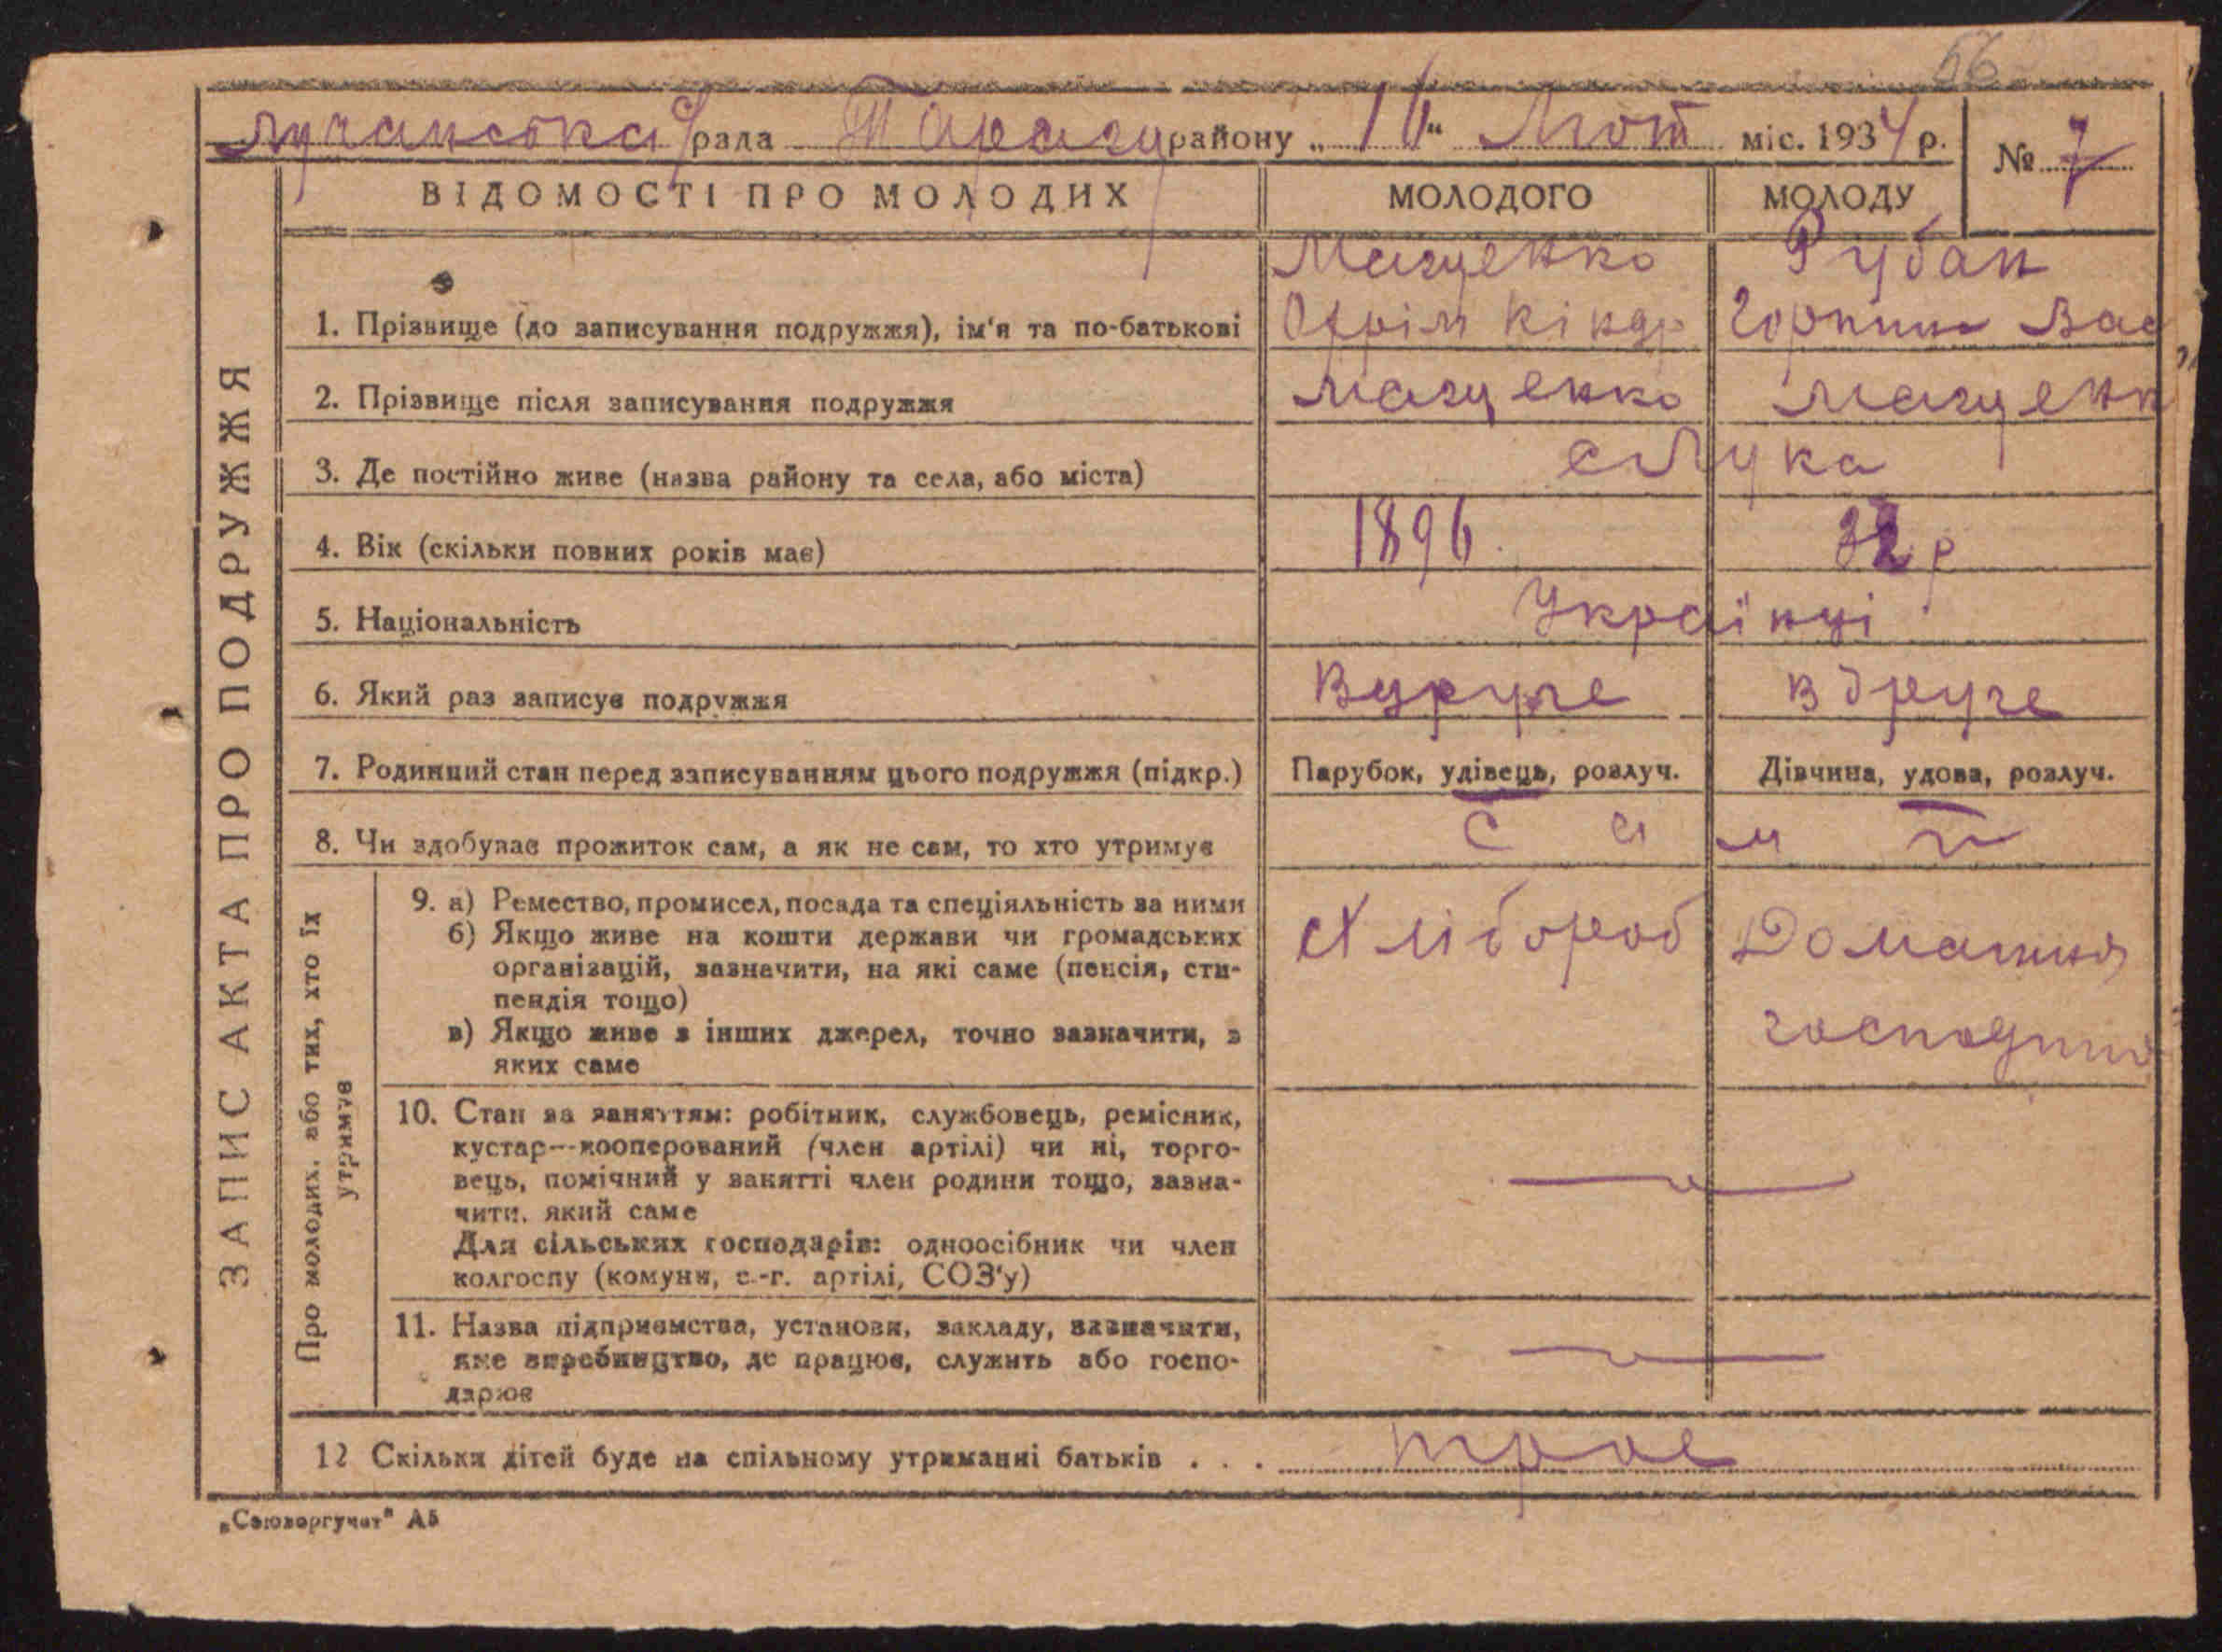 56
Лучанська с/рада Таращ району „16“ Лют міс. 1934 р.
№ 7
ВІДОМОСТІ ПРО МОЛОДИХ МОЛОДОГО МОЛОДУ
ЗАПИС АКТА ПРО ПОДРУЖЖЯ
Мащенко Рубан
1. Прізвище (до записування подружжя), ім'я та по-батькові Охрім Кіндр Горпина Вас
2. Прізвище після записування подружжя Мащенко Мащенк
3. Де постійно живе (назва району та села, або міста) с Лука
4. Вік (скільки повних років має) 1896 32 р
5. Національність Українці
6. Який раз записує подружжя Вдруге вдруге
7. Родинний стан перед записуванням цього подружжя (підкр.) Парубок, удівець, розлуч. Дівчина, удова, розлуч.
8. Чи здобуває прожиток сам, а як не сам, то хто утримує С а м и
Про молодих, або тих, хто їх утримує
9. а) Ремество, промисел, посада та спеціяльність за ними Хлібороб Домашня
б) Якщо живе на кошти держави чи громадських
організацій, зазначити, на які саме (пенсія, сти-
пендія тощо)
в) Якщо живе з інших джерел, точно зазначити, з господиня
яких саме
10. Стан за заняттям: робітник, службовець, ремісник,
кустар—кооперований (член артілі) чи ні, торго-
вець, помічний у занятті член родини тощо, зазна-
чити, який саме
Для сільських господарів: одноосібник чи член
колгоспу (комуни, с.-г. артілі, СОЗ'у)
11. Назва підприємства, установи, закладу, зазначити,
яке виробництво, де працює, служить або госпо-
дарює
12 Скільки дітей буде на спільному утриманні батьків . . . троє
„Союзоргучет“ А5